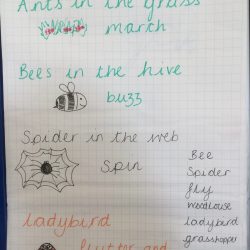 Ants in the grass
march
Bees in the hive
buzz
Spider in the web
Spin
Bee
Spider
fly
woodlouse
ladybird
grasshopper
ladybird
flutter and